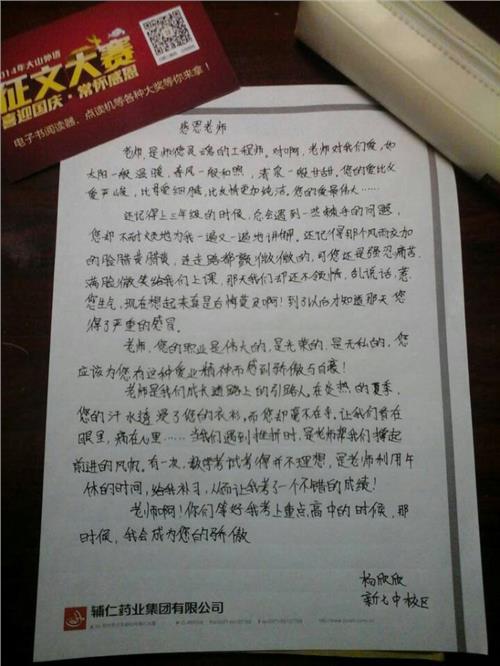 2014年大山外语
征文大赛
喜迎国庆·常怀感恩
电子书阅读器、点读机等各种大奖等你来拿!
感恩老师
老师,是师您灵魂的工程师。对啊,老师对我们爱,如
太阳一般温暖,春风一般和煦,清泉一般甘甜,您的爱比父
爱严峻,比母爱细腻,比友情更加纯洁,您的爱最伟大……
还记得上三年级的时候,总会遇到一些棘手的问题,
您却不耐烦地为我一遍又一遍地讲解。还记得那个风雨交加
的脸腾黄腾黄,连走路都颤微微的,可您还是强忍痛苦,
满脸微笑给我们上课,那天我们却还不领情,乱说话,惹
您生气,现在想起来真是后悔莫及啊!到了以后才知道那天您
得了严重的感冒。
老师,您的职业是伟大的,是光荣的,是无私的,您
应该为您有这种爱业精神而感到骄傲与自豪!
老师是我们成长道路上的引路人,在炎热的夏季,
您的汗水透浸了您的衣衫,而您却毫不在乎,让我们看在
眼里,痛在心里……当我们遇到挫折时,是老师帮我们撑起
前进的风帆。有一次,数学考试考得并不理想,是老师利用午
休的时间,给我补习,从而让我考了一个不错的成绩!
老师啊!你们等好我考上重点高中的时候,那
时候,我会成为您的骄傲
杨欣欣
新七中校区
辅仁药业集团有限公司